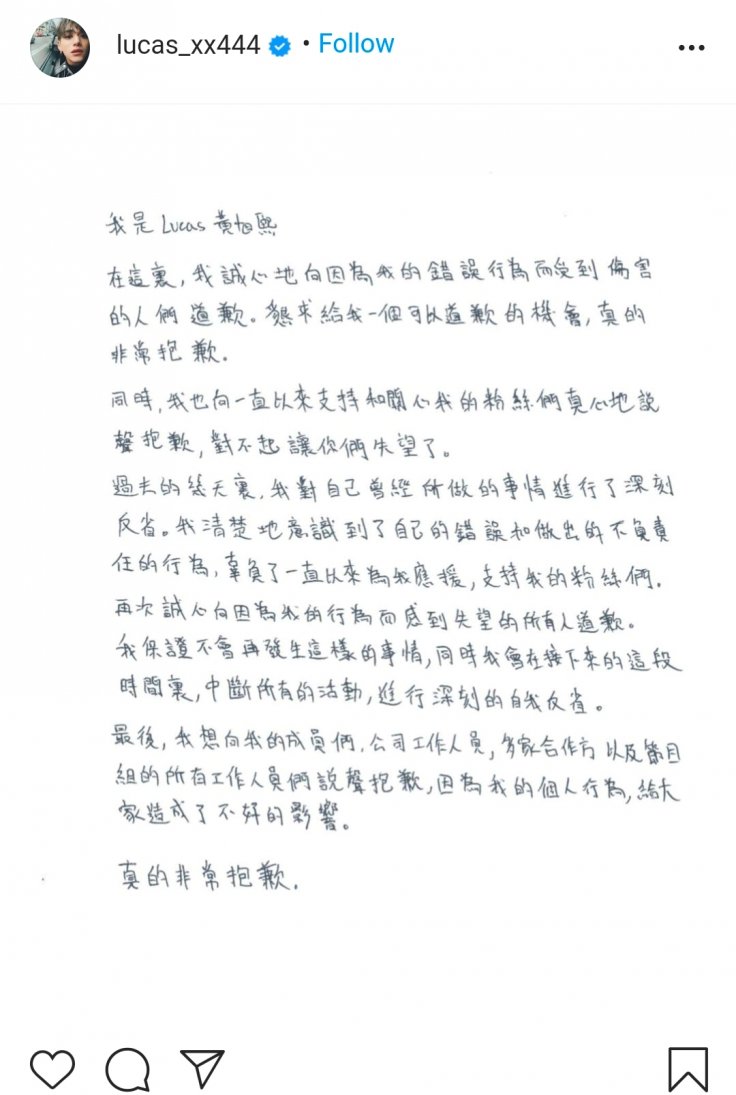 lucas_xx444 • Follow
我是Lucas 黃旭熙
在這裏,我誠心地向因為我的錯誤行為而受到傷害
的人們道歉。懇求給我一個可以道歉的機會,真的
非常抱歉.
同時,我也向一直以來支持和關心我的粉絲們真心地說
聲抱歉,對不起讓你們失望了。
過去的幾天裏,我對自己曾經所做的事情進行了深刻
反省。我清楚地意識到了自己的錯誤和做出的不負責
任的行為,辜負了一直以來為我應援,支持我的粉絲們.
再次誠心向因為我的行為而感到失望的所有人道歉。
我保證不會再發生這樣的事情,同時我會在接下來的這段
時間裏,中斷所有的活動,進行深刻的自我反省。
最後,我想向我的成員們,公司工作人員,多家合作方以及節目
組的所有工作人員們說聲抱歉,因為我的個人行為,給大
家造成了不好的影響。
真的非常抱歉.